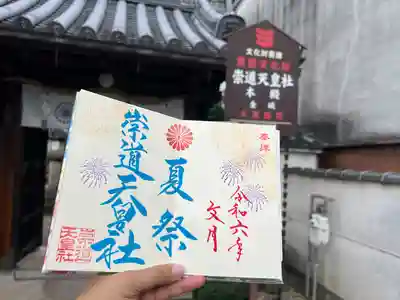 文化財愛護
重要文化財
崇道天皇社
本殿
奉拝
夏祭
崇道天皇社
令和六年
文月
崇道
天皇社